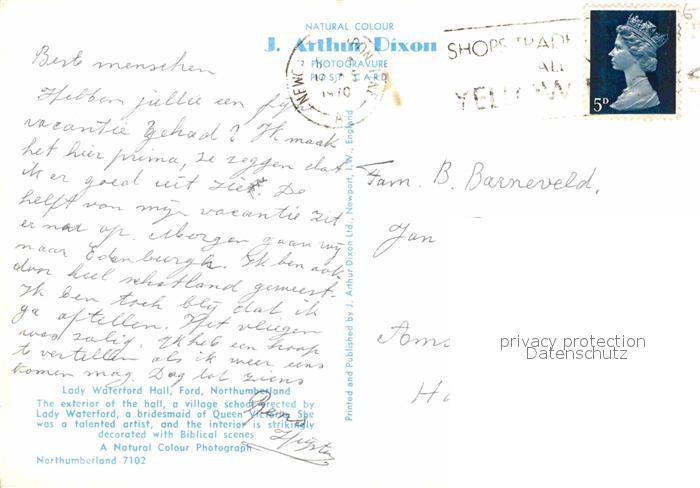 NATURAL COLOUR
J. Arthur Dixon
PHOTOGRAVURE
POST CARD
1970
SHOPS TRADE
ALL
YELLOW
5D
Beste menschen
Hebben jullie een fijn
vacantie gehad? Ik maak
het hier prima, ze zeggen dat
ik er goed uit zie. De
helft van mijn vacantie zit
er nu op. Morgen gaan wij
naar Edenburgh. Ik ben ook
door heel schotland geweest.
Ik ben toch blij dat ik
ga aftellen. Het vliegen
was zalig. Ik heb een hoop
te vertellen als ik weer eens
komen mag. Dag tot ziens
Fam. B. Barneveld,
Jan
Ams
Ho
privacy protection
Datenschutz
Printed and Published by J. Arthur Dixon Ltd., Newport, I.W., England
Lady Waterford Hall, Ford, Northumberland
The exterior of the hall, a village school erected by
Lady Waterford, a bridesmaid of Queen Victoria. She
was a talented artist, and the interior is strikingly
decorated with Biblical scenes
A Natural Colour Photograph
Northumberland 7102